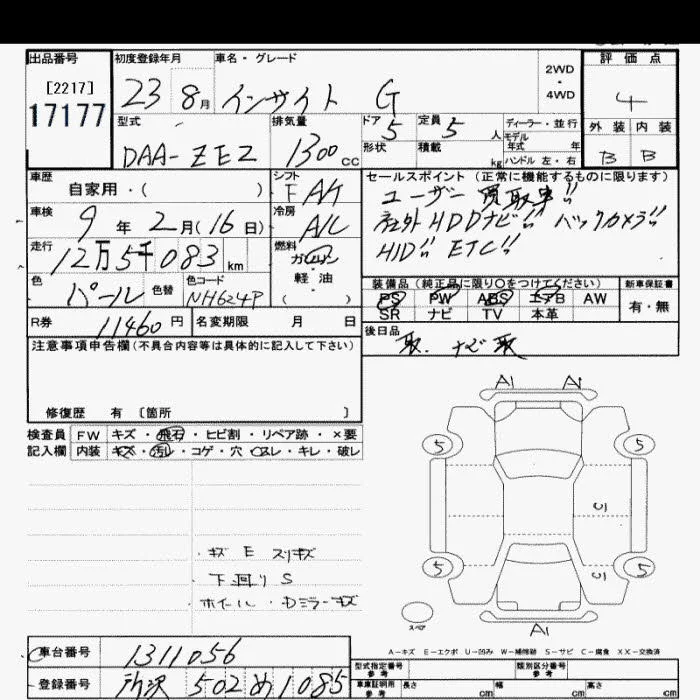 出品番号 初度登録年月 車名・グレード 2WD・4WD 評価点
[2217] 17177 23 8月 インサイト G 4
型式 排気量 ドア 5 定員 5 人 ディーラー・並行 外装 内装
DAA-ZE2 1300cc 形状 積載 kg モデル年式 年 ハンドル 左・右 B B
車歴 自家用・( ) シフト F A/T セールスポイント (正常に機能するものに限ります)
車検 9年 2月(16日) 冷房 A/C ユーザー買取車!!
社外HDDナビ!! バックカメラ!!
走行 12万5千083km 燃料 ガソリン 軽・油 ( ) HID!! ETC!!
色 パール 色替 色コード NH624P 装備品 (純正品に限り○をつけてください) 新車保証書
PS PW ABS エアB AW 有・無
R券 11460円 名変期限 月 日 SR ナビ TV 本革
注意事項申告欄(不具合内容等は具体的に記入して下さい) 後日品
取. ナビ取
修復歴 有 〔箇所 〕
検査員 FW キズ・飛石・ヒビ割・リペア跡・×要
記入欄 内装 キズ・汚れ・コゲ・穴・スレ・キレ・破レ
A1 A1
5 5
U1
5 U1 5
スペア A1
・キズ E スリキズ
下回りS
ホイール・Dミラーキズ
A-キズ E-エクボ U-凹み W-補修跡 S-サビ C-腐食 XX-交換済
車台番号 1311056 型式指定番号 参考 類別区分番号 参考
登録番号 所沢 502 め 1085 車庫証明用 参考 長さ cm 幅 cm 高さ cm